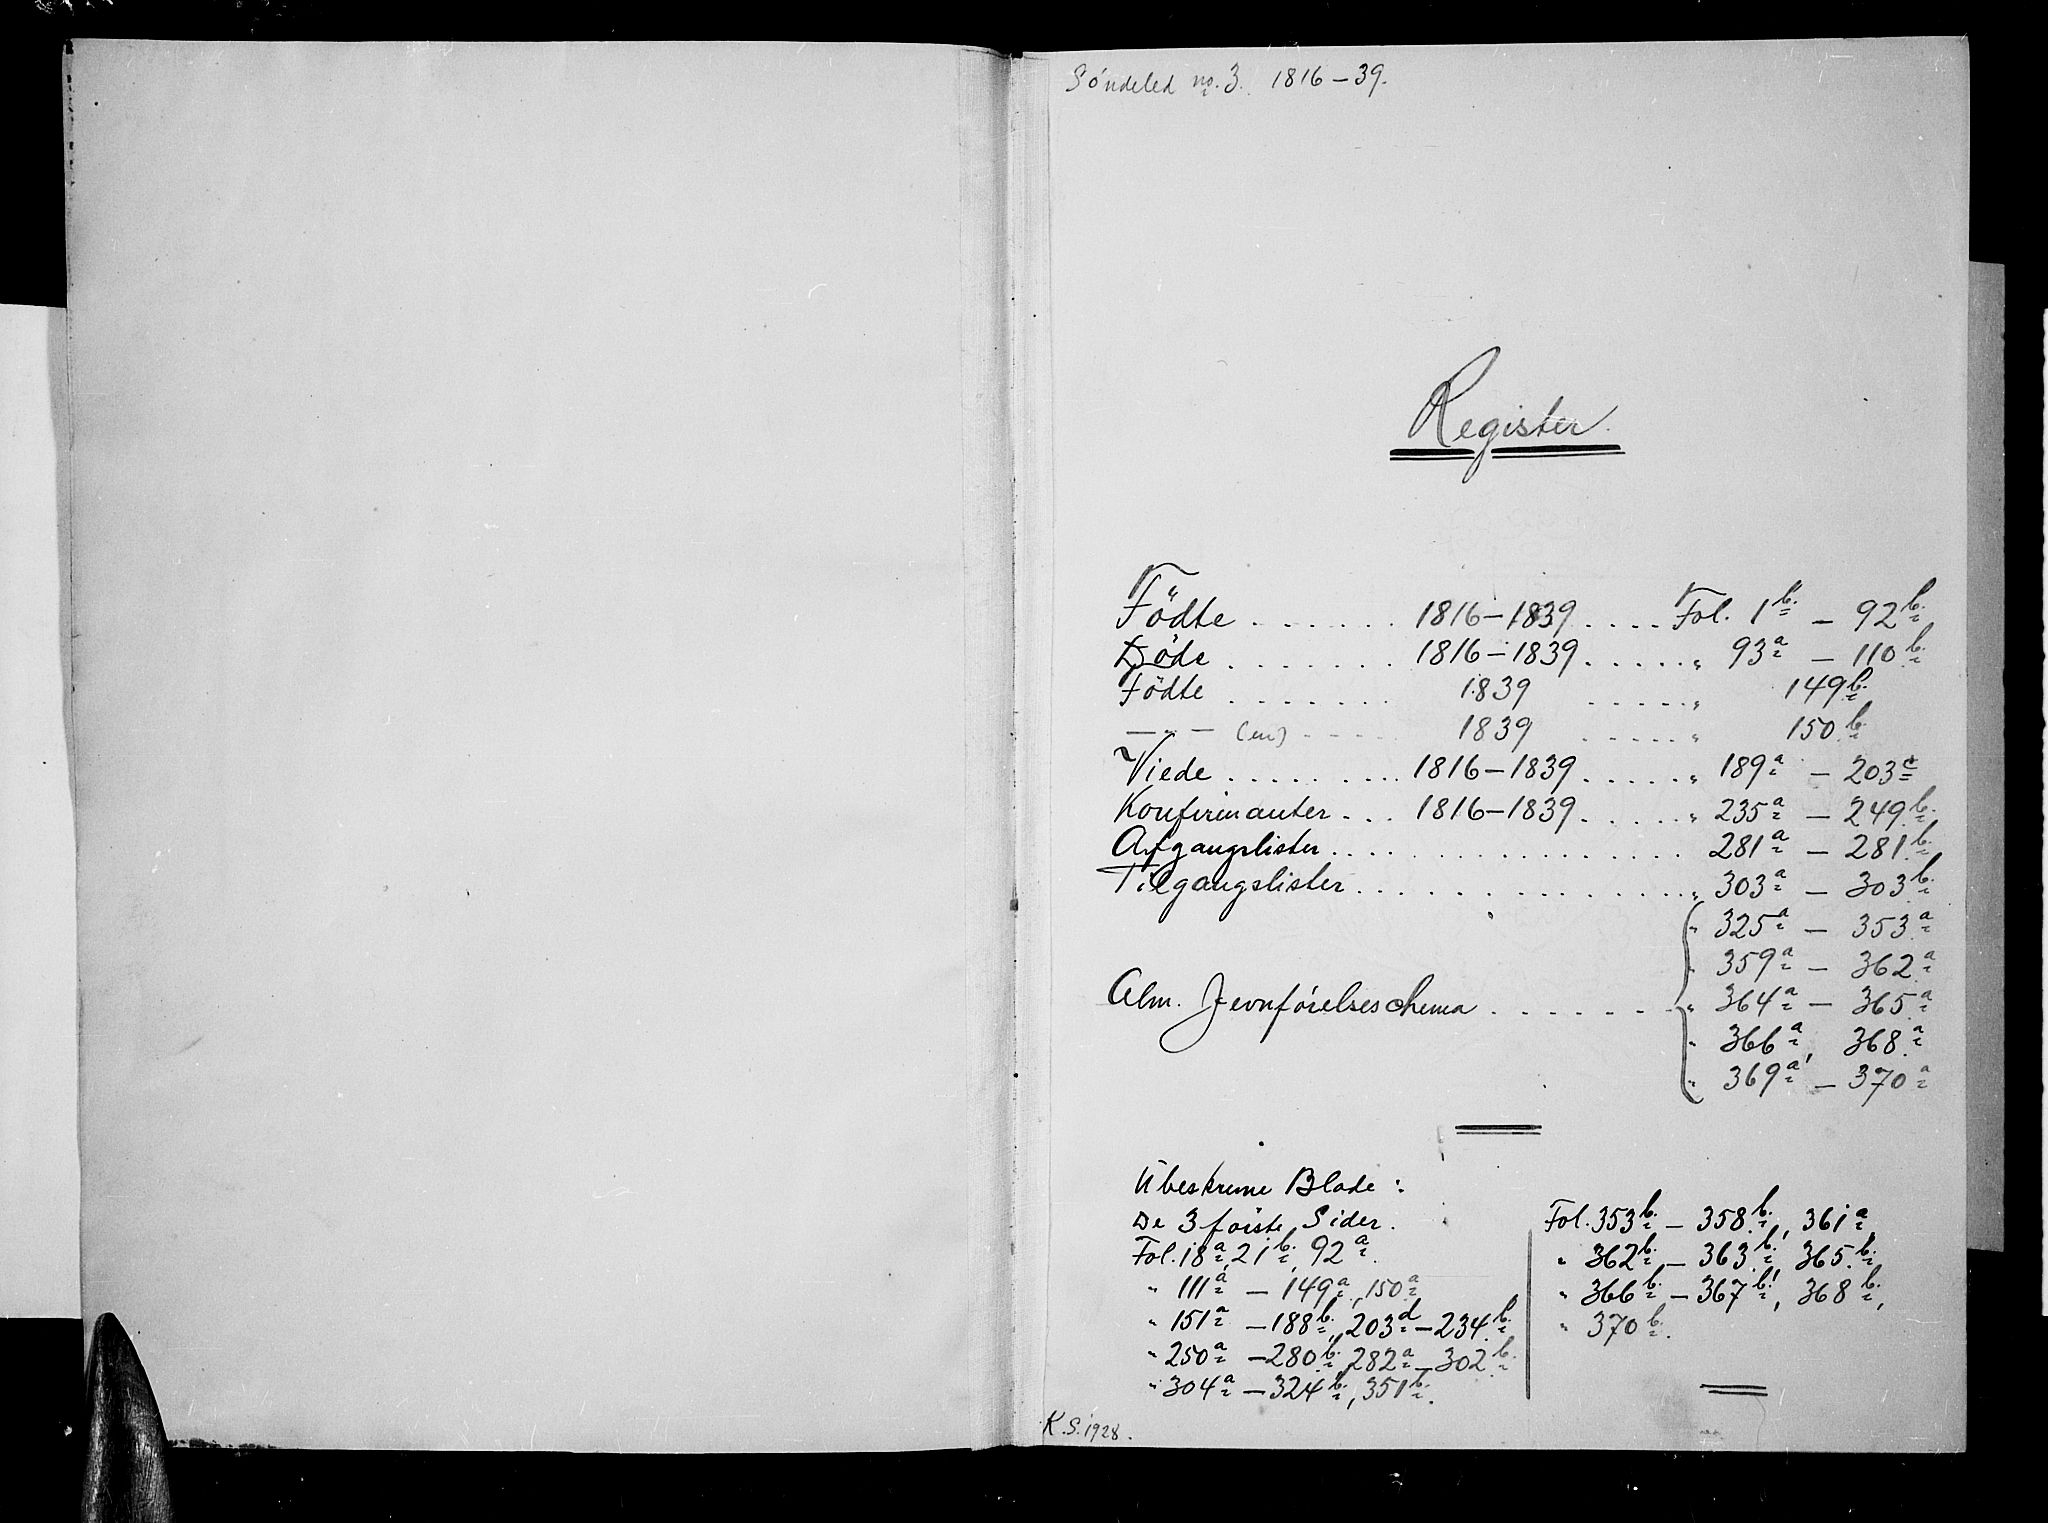 Söndeled no. 3. 1816–39.
Register.
Födte ....... 1816–1839 .... Fol. 1b. – 92b.
Döde ....... 1816–1839 ..... " 93a – 110b.
Födte ....... 1839 ..... " 149b.
—"— (en) ..... 1839 ..... " 150b.
Viede ........ 1816–1839 ..... " 189a – 203c
Konfirmanter ... 1816–1839 ..... " 235a – 249b.
Afgangslister ................. 281a – 281b.
Tilgangslister ................ " 303a – 303b.
" 325a – 353a
" 359a – 362a
Alm. Jevnförelseschema ....... " 364a – 365a
" 366a, 368a
" 369a – 370a
Ubeskrevne Blade:
De 3 förste Sider.
Fol. 18a, 21b, 92a.
" 111a – 149a, 150a
" 151a – 188b, 203d – 234b.
" 250a – 280b, 282a – 302b.
" 304a – 324b, 351b.
Fol. 353b. – 358b., 361a,
" 362b. – 363b., 365b.,
" 366b. – 367b., 368b.,
" 370b.
K.S. 1928.